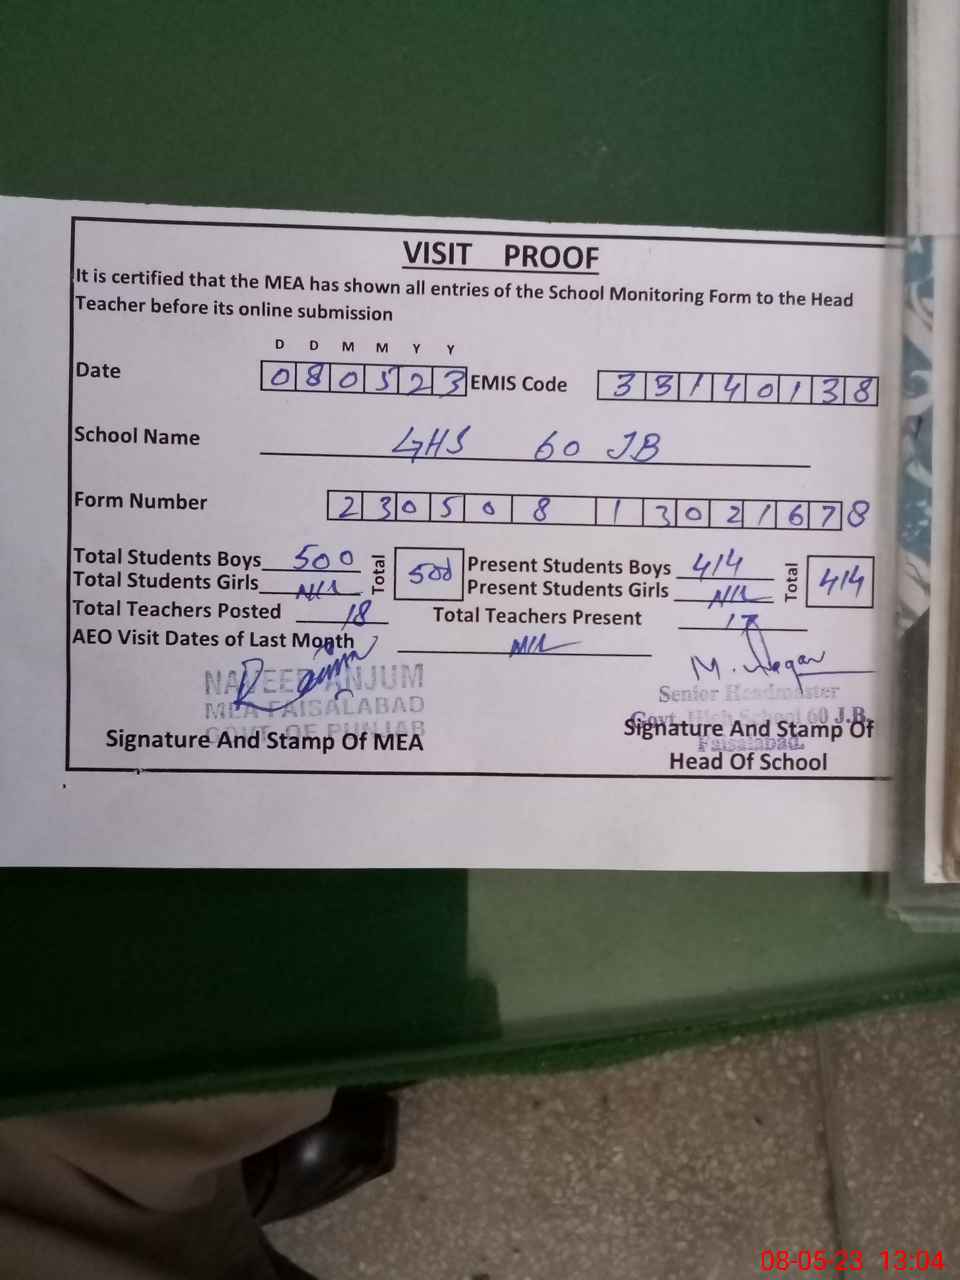 VISIT PROOF
It is certified that the MEA has shown all entries of the School Monitoring Form to the Head
Teacher before its online submission
D D M M Y Y
Date 080523 EMIS Code 33140138
School Name GHS 60 JB
Form Number 230508 13021678
Total Students Boys 500 Total 500 Present Students Boys 414 Total 414
Total Students Girls Nil Present Students Girls Nil
Total Teachers Posted 18 Total Teachers Present 17
AEO Visit Dates of Last Month Nil
NAVEED ANJUM
MEA FAISALABAD
GOVT. OF PUNJAB
Signature And Stamp Of MEA
M.
Senior Headmaster
Govt. High School 60 J.B.
Faisalabad.
Signature And Stamp Of
Head Of School
08-05-23 13:04